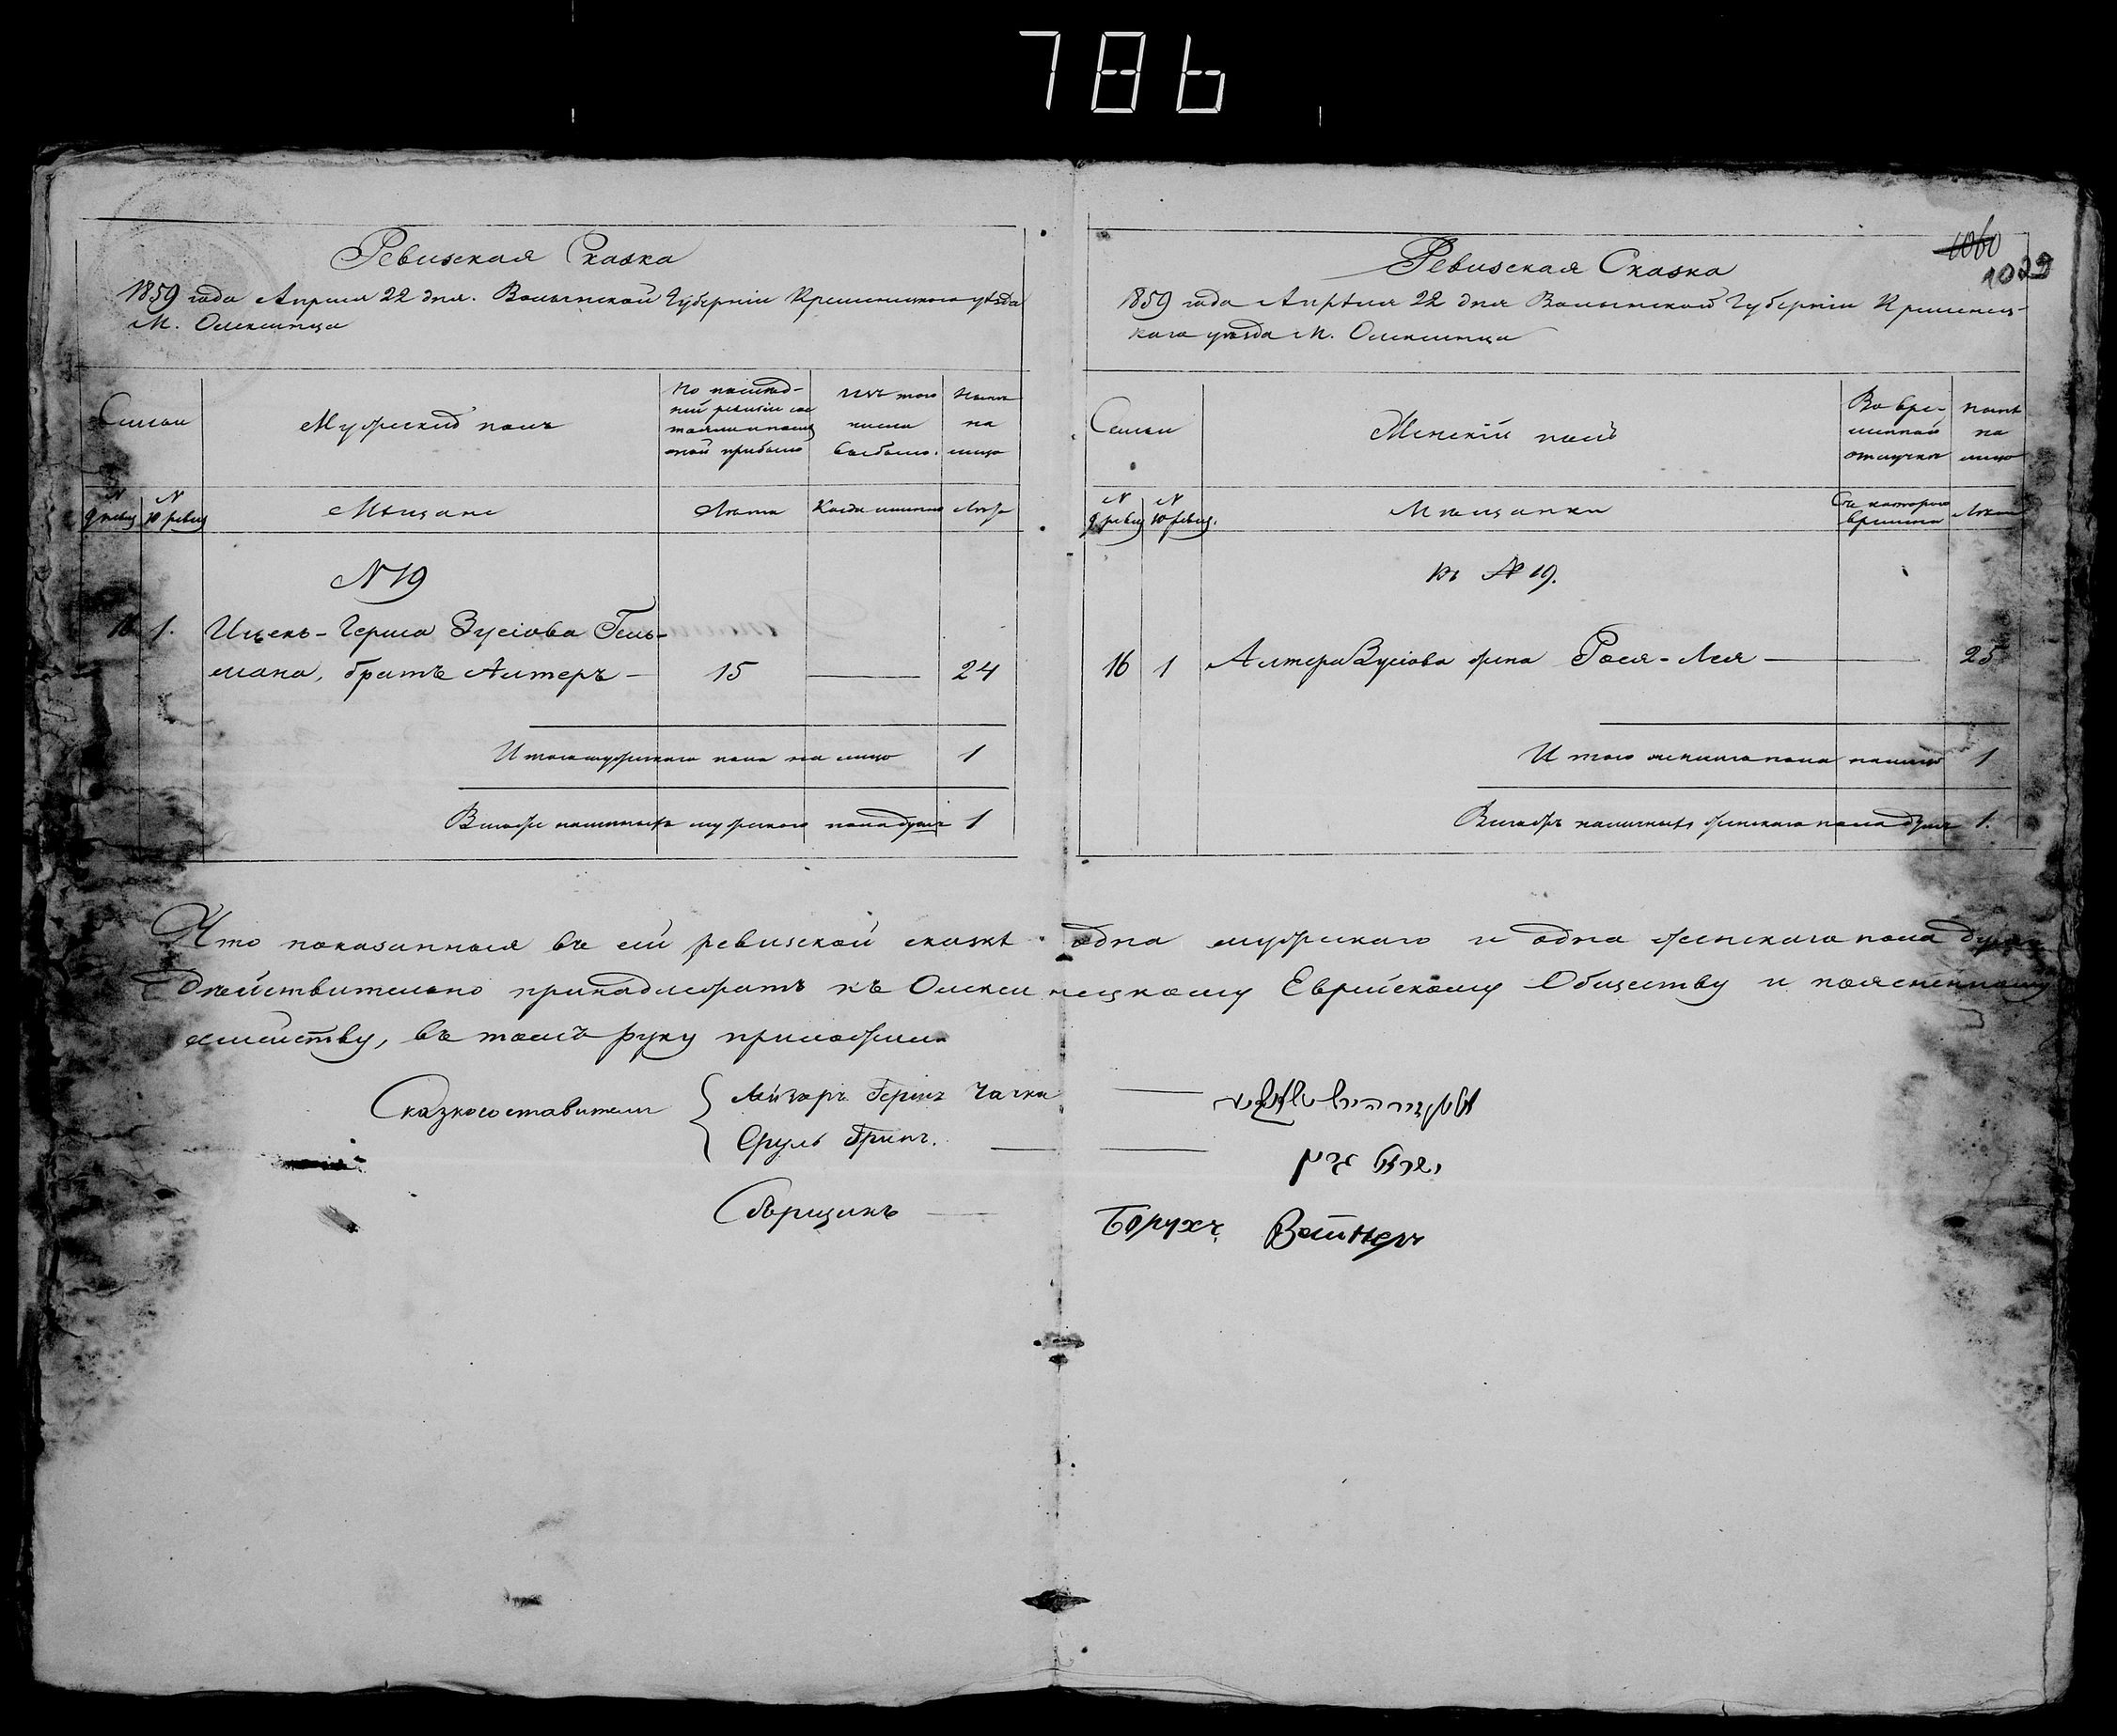 786
Ревизская Сказка
1859 года Апреля 22 дня. Волынской Губерніи Кременецкого уѣзда
М. Олексинца
Семьи
Мужеский полъ
По послѣд-
ней ревизіи сос
тояло и послѣ
оной прибыло
Изъ того
числа
выбыло.
Нынѣ
на
лицо
N
9 ревиз
N
10 ревиз
Мѣщане
Лѣта
Когда именно
Лѣта
N 19
16 1. Ицекъ-Герша Зусіова Гель-
мана, братъ Алтеръ — 15 — 24
Итого мужескаго пола на лицо 1
Всего наличныхъ мужеского пола душъ 1
1060
1029
Ревизская Сказка
1859 года Апрѣля 22 дня Волынской Губерніи Кременец-
кого уѣзда М. Олексинца
Семьи
Женскій полъ
Во вре-
менной
отлучкѣ
нынѣ
на
лицо
N
9 ревиз
N
10 ревиз.
Мѣщанки
Съ которого
времени
Лѣта
къ N 19.
16 1 Алтера Зусіова жена Рося-Лея — 25
И того женского пола налицо 1
Всего наличныхъ женского пола душъ 1.
Что показанныя въ сей ревизской сказкѣ одна мужескаго и одна женскаго пола души
дѣйствительно принадлежатъ къ Олексинецкому Еврейскому Обществу и поясненному
семейству, въ томъ руку приложили
Сказкосоставители { Лейзоръ Гершъ —
Сруль Гринъ. — ישראל גרין
Сборщикъ — Борухъ Вайнеръ